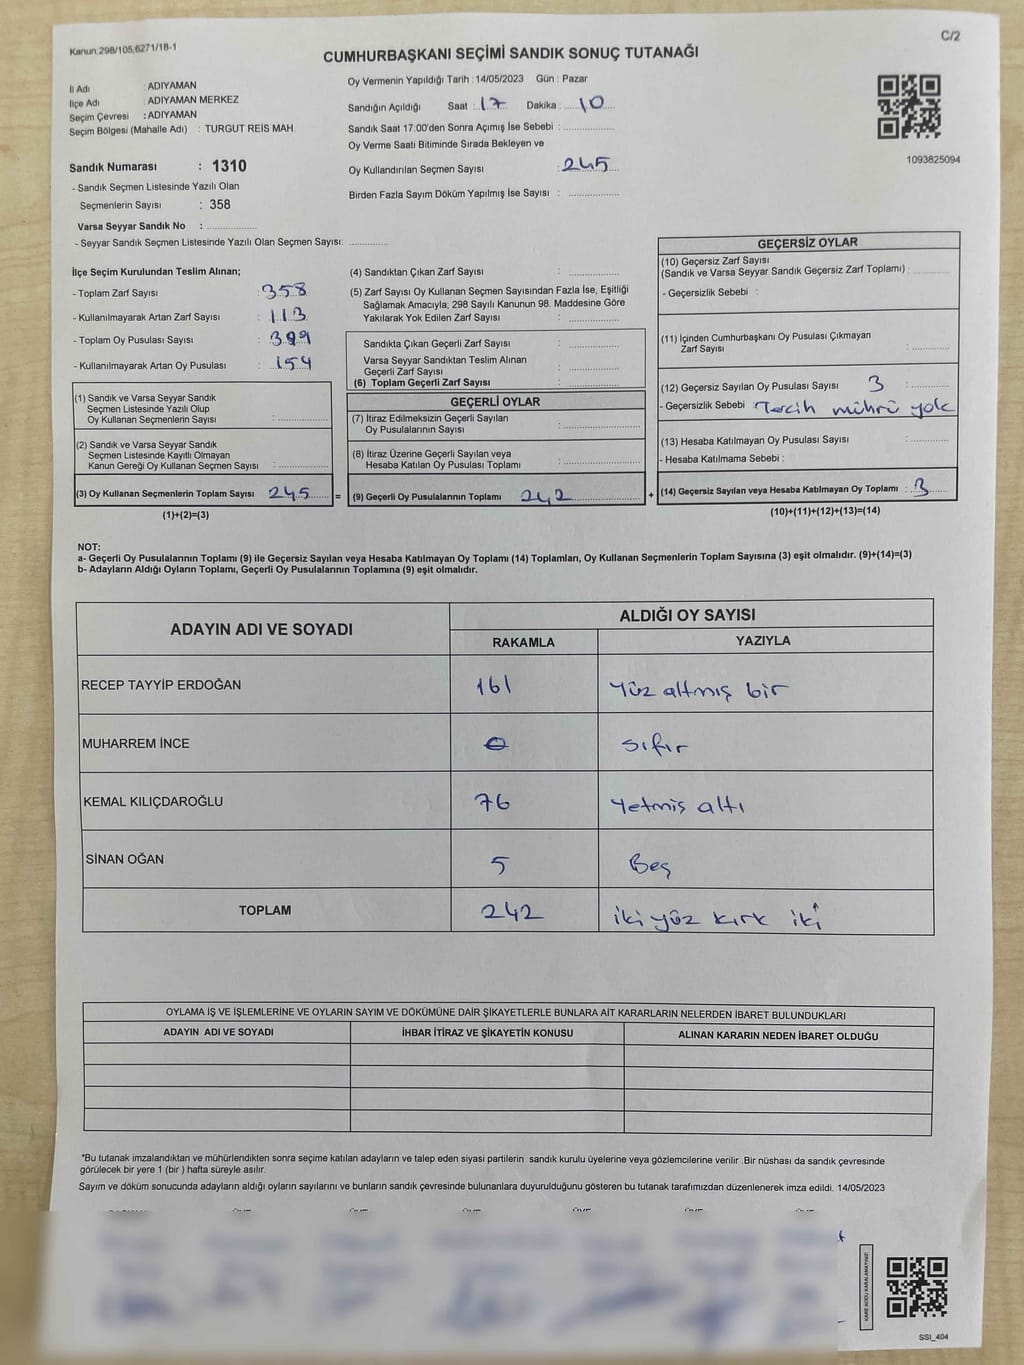 Kanun;298/105,6271/18-1
C/2
CUMHURBAŞKANI SEÇİMİ SANDIK SONUÇ TUTANAĞI
İl Adı : ADIYAMAN
İlçe Adı : ADIYAMAN MERKEZ
Seçim Çevresi : ADIYAMAN
Seçim Bölgesi (Mahalle Adı) : TURGUT REİS MAH.
Oy Vermenin Yapıldığı Tarih : 14/05/2023 Gün : Pazar
Sandığın Açıldığı Saat : 17 Dakika : 10
Sandık Saat 17:00'den Sonra Açımış İse Sebebi :
Oy Verme Saati Bitiminde Sırada Bekleyen ve
Oy Kullandırılan Seçmen Sayısı : 245
Birden Fazla Sayım Döküm Yapılmış İse Sayısı :
1093825094
Sandık Numarası : 1310
- Sandık Seçmen Listesinde Yazılı Olan
Seçmenlerin Sayısı : 358
Varsa Seyyar Sandık No :
- Seyyar Sandık Seçmen Listesinde Yazılı Olan Seçmen Sayısı:
İlçe Seçim Kurulundan Teslim Alınan;
- Toplam Zarf Sayısı : 358
- Kullanılmayarak Artan Zarf Sayısı : 113
- Toplam Oy Pusulası Sayısı : 399
- Kullanılmayarak Artan Oy Pusulası : 154
(1) Sandık ve Varsa Seyyar Sandık
Seçmen Listesinde Yazılı Olup
Oy Kullanan Seçmenlerin Sayısı :
(2) Sandık ve Varsa Seyyar Sandık
Seçmen Listesinde Kayıtlı Olmayan
Kanun Gereği Oy Kullanan Seçmen Sayısı :
(3) Oy Kullanan Seçmenlerin Toplam Sayısı 245 =
(1)+(2)=(3)
(4) Sandıktan Çıkan Zarf Sayısı :
(5) Zarf Sayısı Oy Kullanan Seçmen Sayısından Fazla İse, Eşitliği
Sağlamak Amacıyla; 298 Sayılı Kanunun 98. Maddesine Göre
Yakılarak Yok Edilen Zarf Sayısı :
Sandıkta Çıkan Geçerli Zarf Sayısı :
Varsa Seyyar Sandıktan Teslim Alınan
Geçerli Zarf Sayısı :
(6) Toplam Geçerli Zarf Sayısı :
GEÇERLİ OYLAR
(7) İtiraz Edilmeksizin Geçerli Sayılan
Oy Pusulalarının Sayısı :
(8) İtiraz Üzerine Geçerli Sayılan veya
Hesaba Katılan Oy Pusulası Toplamı :
(9) Geçerli Oy Pusulalarının Toplamı 242 +
GEÇERSİZ OYLAR
(10) Geçersiz Zarf Sayısı
(Sandık ve Varsa Seyyar Sandık Geçersiz Zarf Toplamı) :
- Geçersizlik Sebebi :
(11) İçinden Cumhurbaşkanı Oy Pusulası Çıkmayan
Zarf Sayısı :
(12) Geçersiz Sayılan Oy Pusulası Sayısı 3 :
- Geçersizlik Sebebi : Tercih mührü yok
(13) Hesaba Katılmayan Oy Pusulası Sayısı :
- Hesaba Katılmama Sebebi :
(14) Geçersiz Sayılan veya Hesaba Katılmayan Oy Toplamı : 3
(10)+(11)+(12)+(13)=(14)
NOT:
a- Geçerli Oy Pusulalarının Toplamı (9) ile Geçersiz Sayılan veya Hesaba Katılmayan Oy Toplamı (14) Toplamları, Oy Kullanan Seçmenlerin Toplam Sayısına (3) eşit olmalıdır. (9)+(14)=(3)
b- Adayların Aldığı Oyların Toplamı, Geçerli Oy Pusulalarının Toplamına (9) eşit olmalıdır.
ADAYIN ADI VE SOYADI ALDIĞI OY SAYISI
RAKAMLA YAZIYLA
RECEP TAYYİP ERDOĞAN 161 Yüz altmış bir
MUHARREM İNCE 0 sıfır
KEMAL KILIÇDAROĞLU 76 Yetmiş altı
SİNAN OĞAN 5 Beş
TOPLAM 242 iki yüz kırk iki
OYLAMA İŞ VE İŞLEMLERİNE VE OYLARIN SAYIM VE DÖKÜMÜNE DAİR ŞİKAYETLERLE BUNLARA AİT KARARLARIN NELERDEN İBARET BULUNDUKLARI
ADAYIN ADI VE SOYADI İHBAR İTİRAZ VE ŞİKAYETİN KONUSU ALINAN KARARIN NEDEN İBARET OLDUĞU
*Bu tutanak imzalandıktan ve mühürlendikten sonra seçime katılan adayların ve talep eden siyasi partilerin sandık kurulu üyelerine veya gözlemcilerine verilir .Bir nüshası da sandık çevresinde
görülecek bir yere 1 (bir ) hafta süreyle asılır.
Sayım ve döküm sonucunda adayların aldığı oyların sayılarını ve bunların sandık çevresinde bulunanlara duyurulduğunu gösteren bu tutanak tarafımızdan düzenlenerek imza edildi. 14/05/2023
KARE KODU KARALAMAYINIZ!
SSI_404